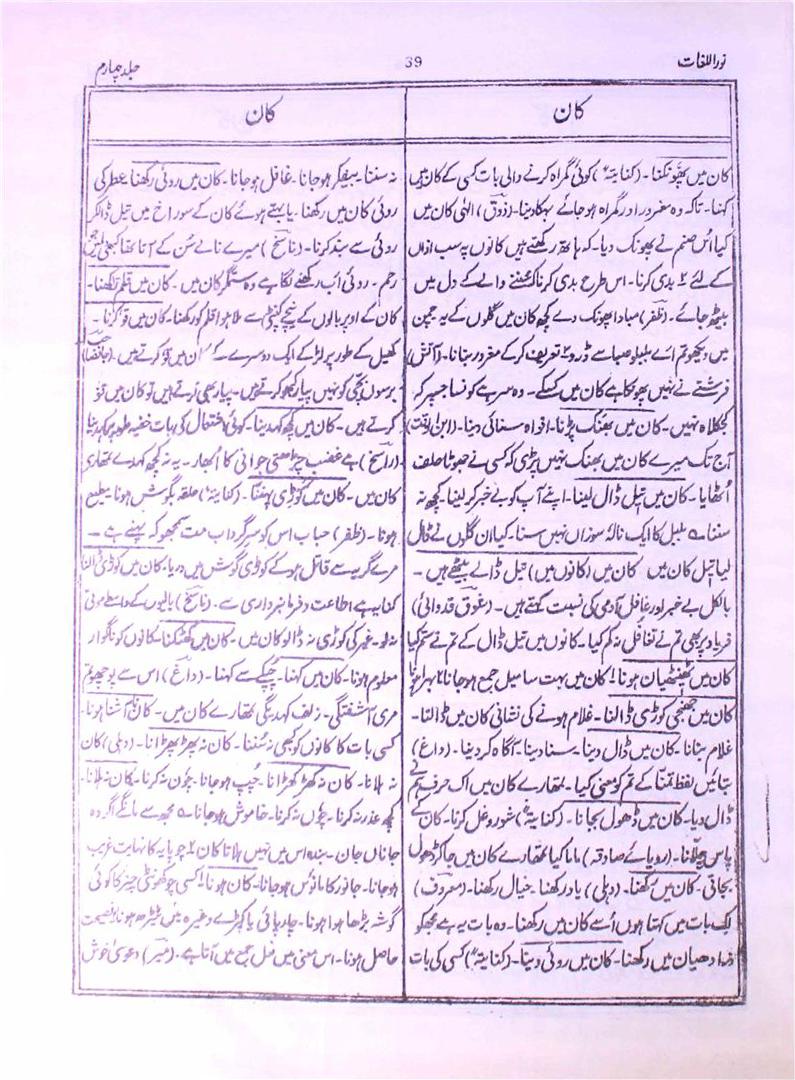 نور اللغات
39
جلد چہارم
کان
کان میں پھونکنا۔ (کنایۃً) کوئی گمراہ کرنے والی بات کسی کے کان میں
کہنا۔ تاکہ وہ مغرور اور گمراہ ہو جائے بہکا دینا۔ (ذوق) الٰہی کان میں
کیا اُس صنم نے پھونک دیا۔ کہ ہاتھ رکھتے ہیں کانوں پہ سب اذاں
کے لئے ۲ بدی کرنا۔ اس طرح بدی کرنا کہ سننے والے کے دل میں
بیٹھ جائے۔ (ظفر) مبادا پھونک دے کچھ کان میں گلوں کے یہ چمن
میں دیکھو تم اے بلبلو صبا سے ڈرو ۲ تعریف کرکے مغرور بنانا۔ (آتش)
فرشتے نے نہیں پھونکا ہے کان میں کسکے۔ وہ سر ہے کونسا جسپر کہ
کجکلاہ نہیں۔ کان میں بھنک پڑنا۔ افواہ سنائی دینا۔ (ابن الوقت)
آج تک میرے کان میں بھنک نہیں پڑی کو کسی نے جھوٹا حلف
اُٹھایا۔ کان میں تیل ڈال لینا۔ اپنے آپ کو بے خبر کو لینا۔ کچھ نہ
سننا ؎ بلبل کا ایک نالۂ سوزاں نہیں سنا۔ کیا ان گلوں نے ڈال
لیا تیل کان میں کان میں (کانوں میں) تیل ڈالے بیٹھے ہیں۔
بالکل بے خبر اور غافل آدمی کی نسبت کہتے ہیں۔ (شوق قدوائی)
فریاد پر بھی تم نے تغافل نہ کم کیا۔ کانوں میں تیل ڈال کے تم نے ستم کیا
کان میں ٹھنٹھیاں ہونا ۱ کان میں بہت سا میل جمع ہو جانا ۲ بہرا ہونا
کان میں جھنجی کوڑی ڈالنا۔ غلام ہونے کی نشانی کان میں ڈالنا۔
غلام بنانا۔ کان میں ڈال دینا۔ سنا دینا ۔ آگاہ کر دینا۔ (داغ)
بتائیں لفظ تمنا کے تم کو معنی کیا۔ تمھارے کان میں اک حرف ہم نے
ڈال دیا۔ کان میں ڈھول بجانا۔ (کنایۃً) شور و غل کرنا۔ کان کے
پاس چلانا۔ (رویائے صادقہ) ماما کیا تمھارے کان میں جا کر ڈھول
بجاتی۔ کان میں رکھنا۔ (دہلی) یاد رکھنا۔ خیال رکھنا۔ (معروف)
ایک بات میں کہتا ہوں اُسے کان میں رکھنا۔ وہ بات یہ ہے مجھکو
ذرا دھیان میں رکھنا۔ کان میں روئی دینا۔ (کنایۃً) کسی کی بات
کان
نہ سننا۔ بیفکر ہو جانا۔ غافل ہو جانا۔ کان میں روئی رکھنا عطر کی
روئی کان میں رکھنا۔ یا بہتے ہوئے کان کے سوراخ میں تیل ڈالکر
روئی سے بند کرنا۔ (ناسخ) میرے نالے سُن کے آتا تھا کبھی
رحم۔ روئی اب رکھنے لگا ہے وہ ستمگر کان میں۔ کان میں قلم رکھنا۔
کان کے اوپر بالوں کے نیچے کنپٹی سے ملا ہوا قلم کو رکھنا۔ کان میں قو کرنا۔
کھیل کے طور پر لڑکے ایک دوسرے کے کان میں قو کرتے ہیں۔ (جانصاحب)
برسوں بچی کو نہیں پیار کبھو کرتے ہیں۔ پیار بھی کرتے ہیں تو کان میں قو
کرتے ہیں۔ کان میں کچھ کہدینا۔ کوئی اشتعال کی بات خفیہ طور پر کہدینا
(راسخ) ہے غضب چڑھتی جوانی کا اُبھار۔ یہ نہ کچھ کہدے تمھاری
کان میں۔ کان میں کوڑی پہننا۔ (کنایۃً) حلقہ بگوش ہونا۔ مطیع
ہونا۔ (ظفر) حباب اس کو سر گرداب مت سمجھو کہ پہنے ہے۔
مرے گریہ سے قائل ہو کے کوڑی گوش میں دریا۔ کان میں کوڑی ڈالنا
کنایہ ہے اطاعت و فرمانبرداری سے۔ (ناسخ) بالیوں کے واسطے موتی
نہ لو۔ غیر کی کوڑی نہ ڈالو کان میں۔ کان میں کھٹکنا۔ کانوں کو ناگوار
معلوم ہونا۔ کان میں کہنا۔ چپکے سے کہنا۔ (داغ) اس سے پوچھو تم
مری آشفتگی۔ زلف کہدیگی تمھارے کان میں۔ کان نا آشنا ہونا۔
کسی بات کا کانوں کو کبھی نہ سُننا۔ کان نہ پھڑپھڑانا۔ (دہلی) کان
نہ ہلانا۔ کان نہ کھڑکھڑانا۔ چپ ہو جانا۔ چوں نہ کرنا۔ کان نہ ہلانا۔
کچھ عذر نہ کرنا۔ چوں نہ کرنا۔ خاموش ہو جانا ؎ مجھ سے مانگے اگر وہ
جاناں جان۔ بندہ اس میں نہیں ہلاتا کان ۲ چوپایہ کا نہایت غریب
ہو جانا۔ جانور کا مانوس ہو جانا۔ کان ہونا ۱ کسی چوکھونٹی چیز کا کوئی
گوشہ بڑھا ہوا ہونا۔ چارپائی یا کپڑے وغیرہ میں ٹیڑھ ہونا ۲ نصیحت
حاصل ہونا۔ اس معنی میں جمع میں آتا ہے۔ (میر) دعوی خوش